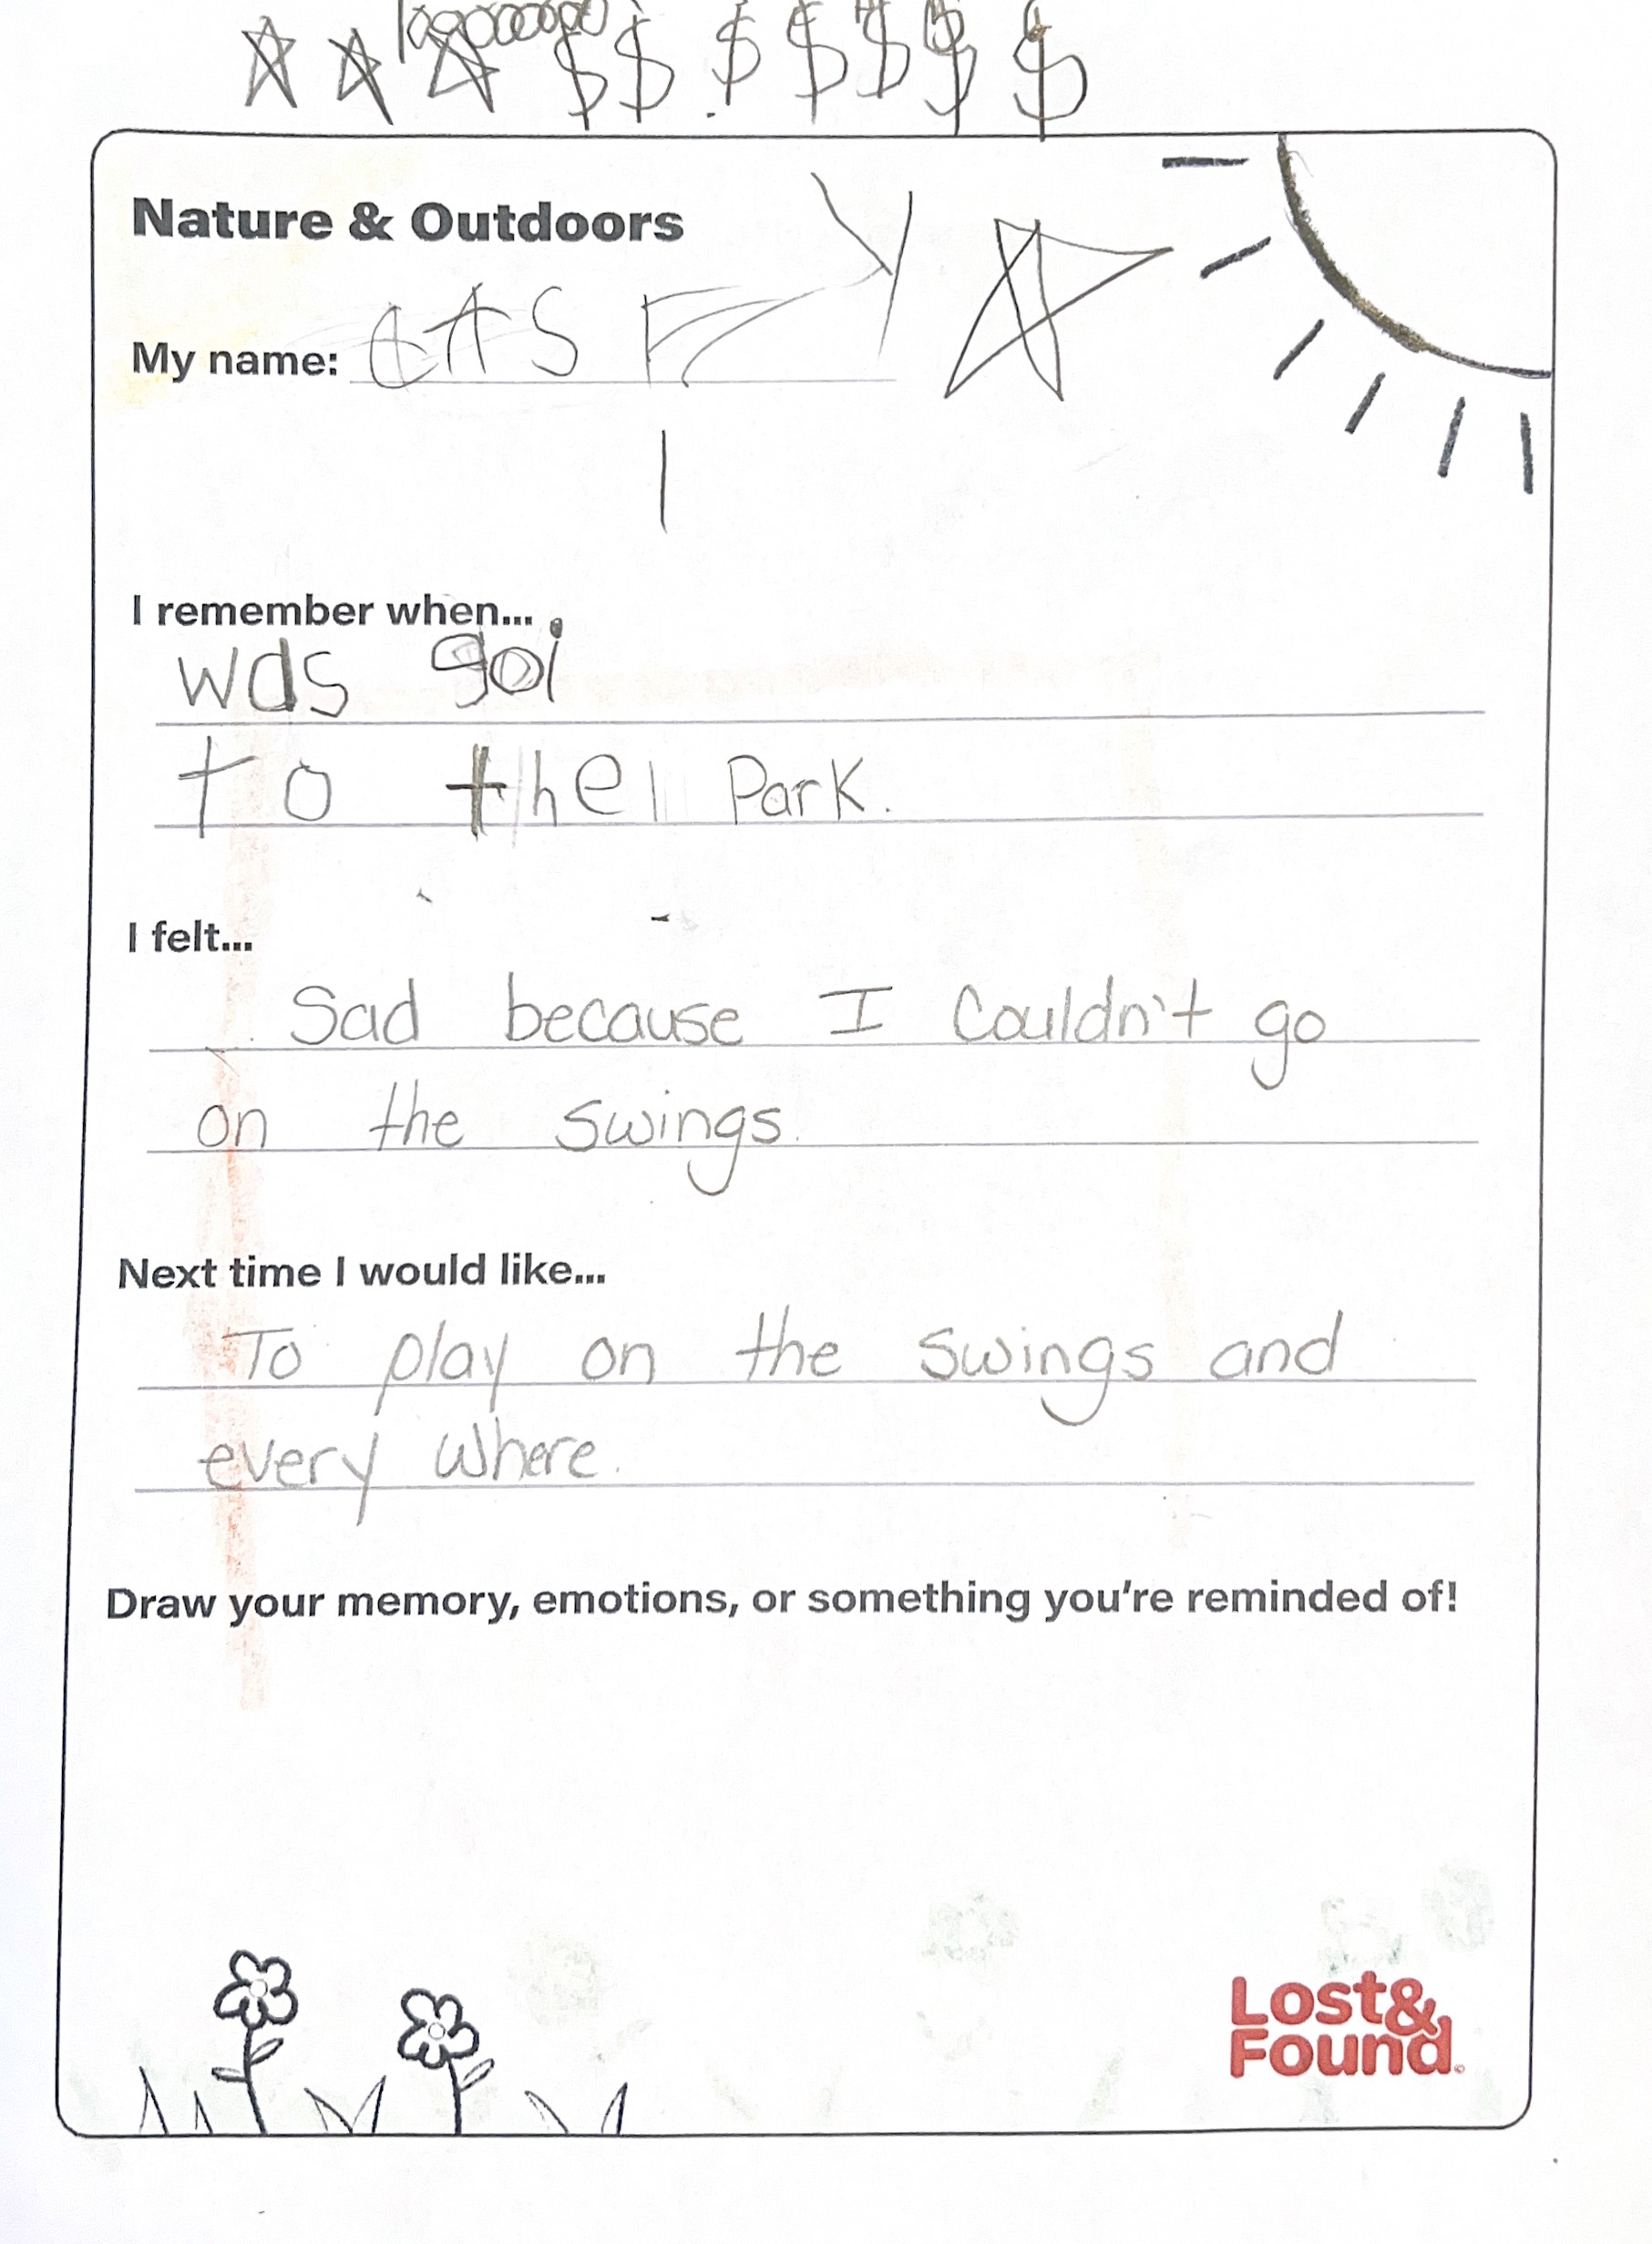 $ $ $ $ $ $ $
Nature & Outdoors
My name: CAS Y
I remember when...
was goi
to the Park.
I felt...
Sad because I couldn't go
on the swings.
Next time I would like...
To play on the swings and
every where.
Draw your memory, emotions, or something you're reminded of!
Lost&
Found.